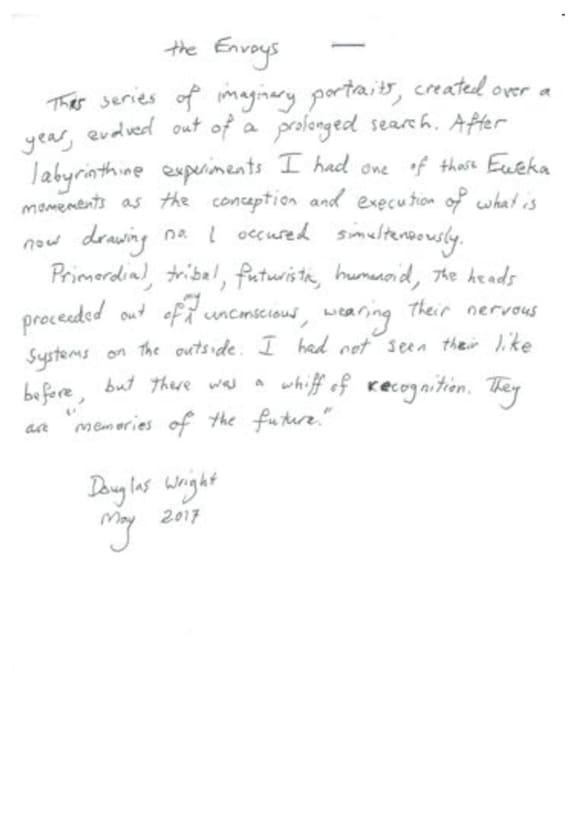 the Envoys —
This series of imaginary portraits, created over a
year, evolved out of a prolonged search. After
labyrinthine experiments I had one of those Eureka
momements as the conception and execution of what is
now drawing no. 1 occured simulteneously.
Primordial, tribal, futuristic, humanoid, the heads
proceeded out of my unconscious, wearing their nervous
systems on the outside. I had not seen their like
before, but there was a whiff of recognition. They
are "memories of the future."
Douglas Wright
May 2017